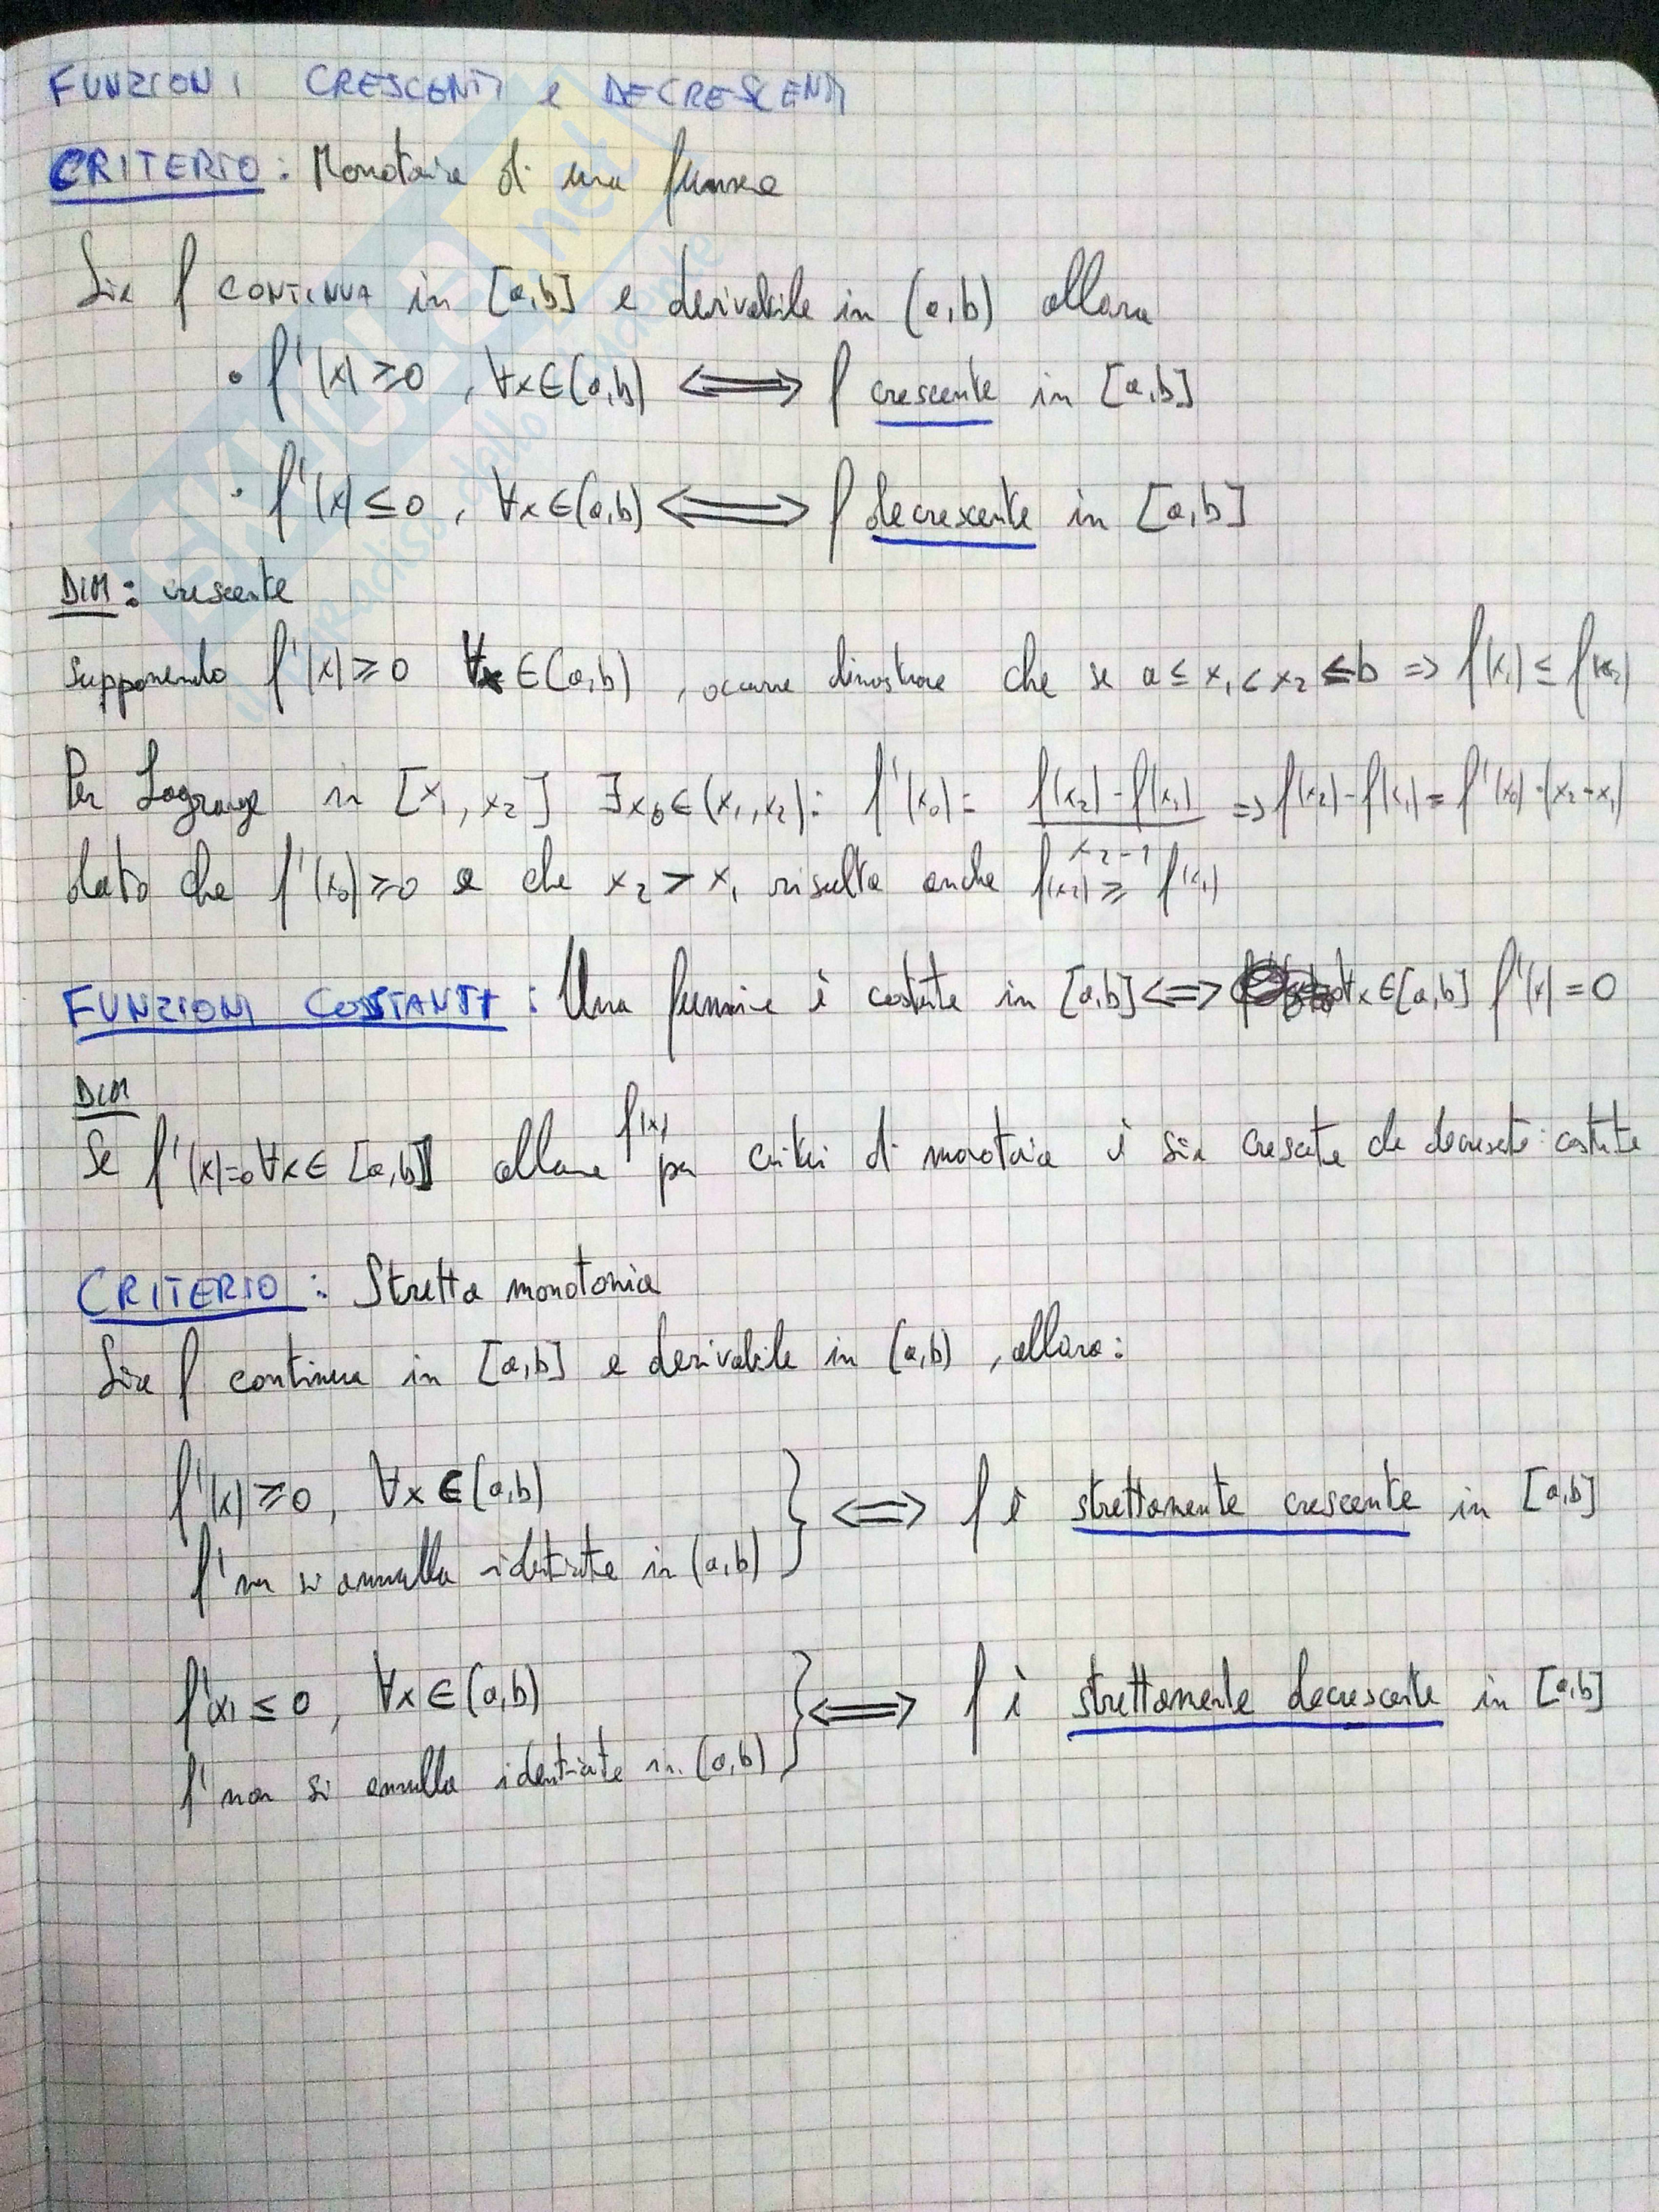 FUNZIONI CRESCENTI e DECRESCENTI
CRITERIO: Monotonia di una funzione
Sia f CONTINUA in [a,b] e derivabile in (a,b) allora
• f'(x) ≥ 0 , ∀x∈(a,b) ⟺ f crescente in [a,b]
• f'(x) ≤ 0 , ∀x∈(a,b) ⟺ f decrescente in [a,b]
DIM: crescente
supponendo f'(x) ≥ 0 ∀x ∈(a,b) , occorre dimostrare che se a ≤ x₁ < x₂ ≤ b ⇒ f(x₁) ≤ f(x₂)
Per Lagrange in [x₁, x₂] ∃x₀∈(x₁,x₂): f'(x₀) = f(x₂) - f(x₁) / x₂ - 1 ⇒ f(x₂) - f(x₁) = f'(x₀)·(x₂-x₁)
dato che f'(x₀) ≥ 0 e che x₂ > x₁ risulta anche f(x₂) ≥ f(x₁)
FUNZIONI COSTANTI : Una funzione è costante in [a,b] ⟺ ∀x∈[a,b] f'(x) = 0
DIM
Se f'(x)=0 ∀x∈ [a,b] allora f(x) per criteri di monotonia è sia crescente che decrescente: costante
CRITERIO : Stretta monotonia
Sia f continua in [a,b] e derivabile in (a,b) , allora:
f'(x) ≥ 0 , ∀x ∈(a,b) } ⟺ f è strettamente crescente in [a,b]
f' non si annulla identicamente in (a,b)
f'(x) ≤ 0 , ∀x ∈(a,b) } ⟺ f è strettamente decrescente in [a,b]
f' non si annulla identicamente in (a,b)